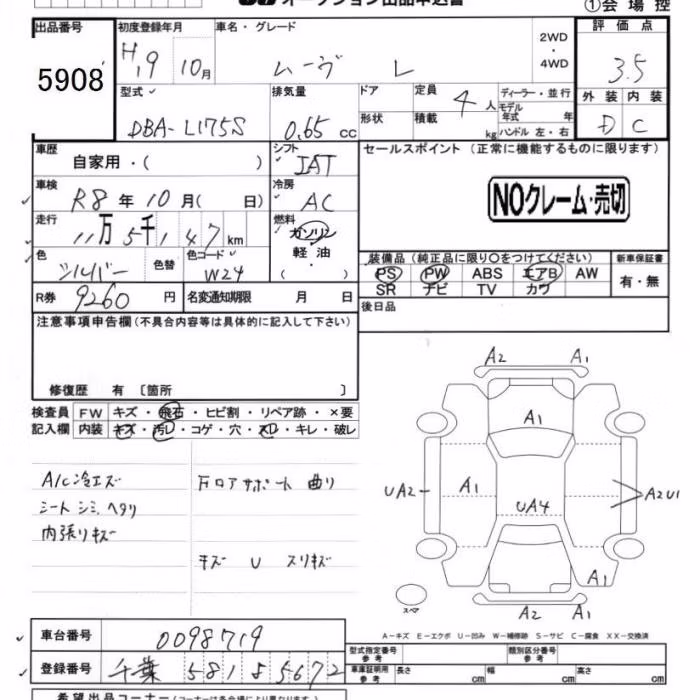 オークション出品申込書 ①会場控
出品番号 初度登録年月 車名・グレード 2WD・4WD 評価点
5908 H19 10月 ムーヴ L 3.5
型式 排気量 ドア 定員 4人 ディーラー・並行 外装 内装
DBA-L175S 0.65 cc 形状 積載 kg モデル年式 年 ハンドル 左・右 D C
車歴 自家用・( ) シフト IAT セールスポイント (正常に機能するものに限ります)
車検 R8年10月( 日) 冷房 AC NOクレーム・売切
走行 11万5千147km 燃料 ガソリン・軽油・( )
色 シルバー 色替 色コード W24 装備品 (純正品に限り○をつけてください) 新車保証書
PS PW ABS エアB AW 有・無
SR ナビ TV カワ
R券 9260円 名変通知期限 月 日 後日品
注意事項申告欄 (不具合内容等は具体的に記入して下さい)
修復歴 有 〔箇所 〕
検査員 FW キズ・飛石・ヒビ割・リペア跡・×要
記入欄 内装 キズ・汚レ・コゲ・穴・スレ・キレ・破レ
A/C冷エズ
シート シミ、ヘタリ
内張りキズ
Fロアサポート 曲り
キズ U スリキズ
A2 A1
A1
UA2 A1 UA4 A2U1
A1
スペア A2 A1
A-キズ E-エクボ U-凹み W-補修跡 S-サビ C-腐食 XX-交換済
車台番号 0098719
型式指定番号 参考 類別区分番号 参考
登録番号 千葉 581 よ 5672
車庫証明用 参考 長さ cm 幅 cm 高さ cm
希望出品コーナー (コーナーは各会場により異なります)